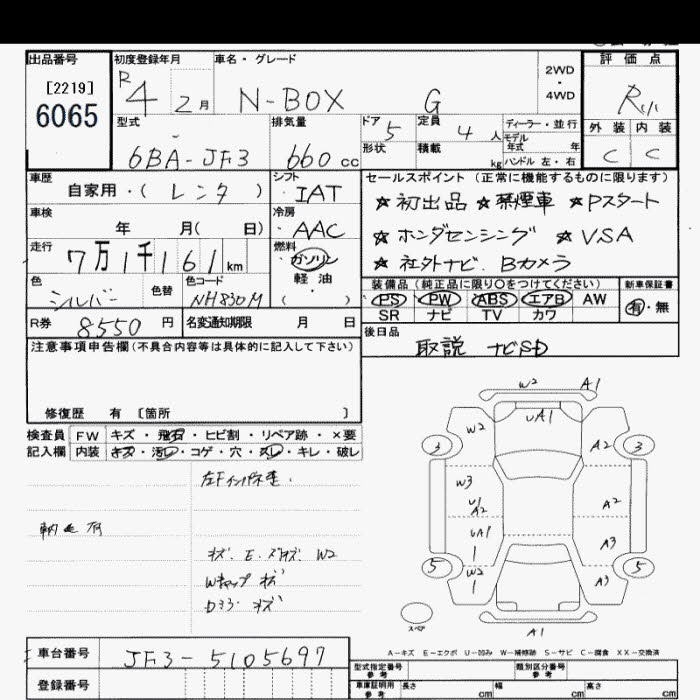 出品番号 初度登録年月 車名・グレード 2WD・4WD 評価点
[2219] 6065 R4 2月 N-BOX G R
型式 排気量 ドア 5 定員 4人 ディーラー・並行 外装 内装
6BA-JF3 660cc 形状 積載 kg モデル年式 年 ハンドル 左・右 C C
車歴 シフト セールスポイント(正常に機能するものに限ります)
自家用・(レンタ) IAT ★初出品 ★禁煙車 ★Pスタート
車検 年 月( 日) 冷房 AAC ★ホンダセンシング ★VSA
走行 7万1千161km 燃料 ガソリン・軽油・( ) ★社外ナビ. Bカメラ
色 シルバー 色替 色コード NH830M 装備品(純正品に限り○をつけてください) 新車保証書
PS PW ABS エアB AW 有・無
SR ナビ TV カワ
R券 8550円 名変通知期限 月 日 後日品
取説 ナビSD
注意事項申告欄(不具合内容等は具体的に記入して下さい)
修復歴 有 [箇所 ]
検査員 FW キズ・飛石・ヒビ割・リペア跡・×要
記入欄 内装 キズ・汚レ・コゲ・穴・スレ・キレ・破レ
キズ. E. W2
Wキャップ キズ
Dミラ キズ
W2 A1
W2 UA1
3 A2 3
W3 A2
U1
A2
UA1 A3
1
5 W2 A3 5
1
スペア A1
A-キズ E-エクボ U-凹み W-補修跡 S-サビ C-腐食 XX-交換済
車台番号 JF3-5105697 型式指定番号 参考 類別区分番号 参考
登録番号 車庫証明用 参考 長さ cm 幅 cm 高さ cm